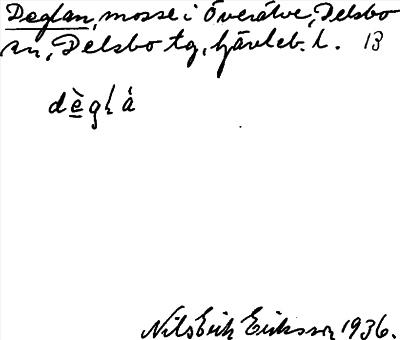 Deglan, mosse i Överälve, Delsbo
sn, Delsbo tg, Gävleb. l. 13
dè̱glá
Nils Erik Eriksson 1936.